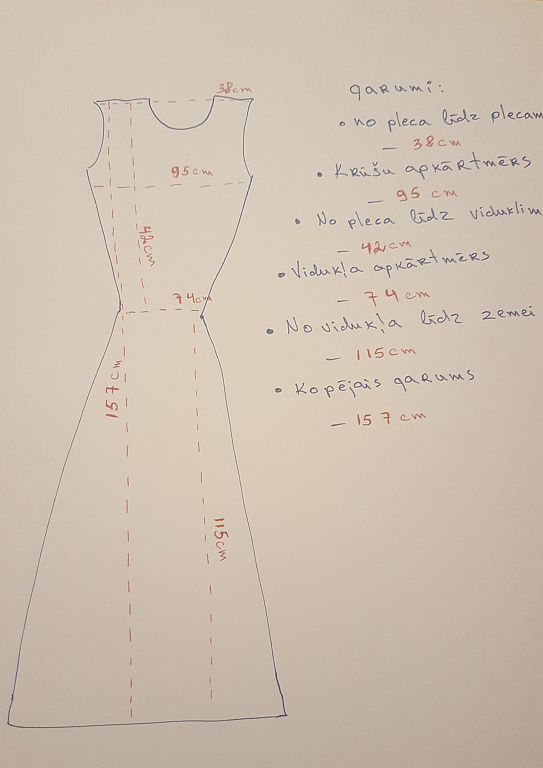 38cm
95cm
42cm
74cm
157cm
115cm
garumi:
• no pleca līdz plecam
– 38cm
• Krūšu apkārtmērs
– 95 cm
• No pleca līdz viduklim
– 42cm
• Vidukļa apkārtmērs
– 74 cm
• No vidukļa līdz zemei
– 115cm
• Kopējais garums
– 157cm